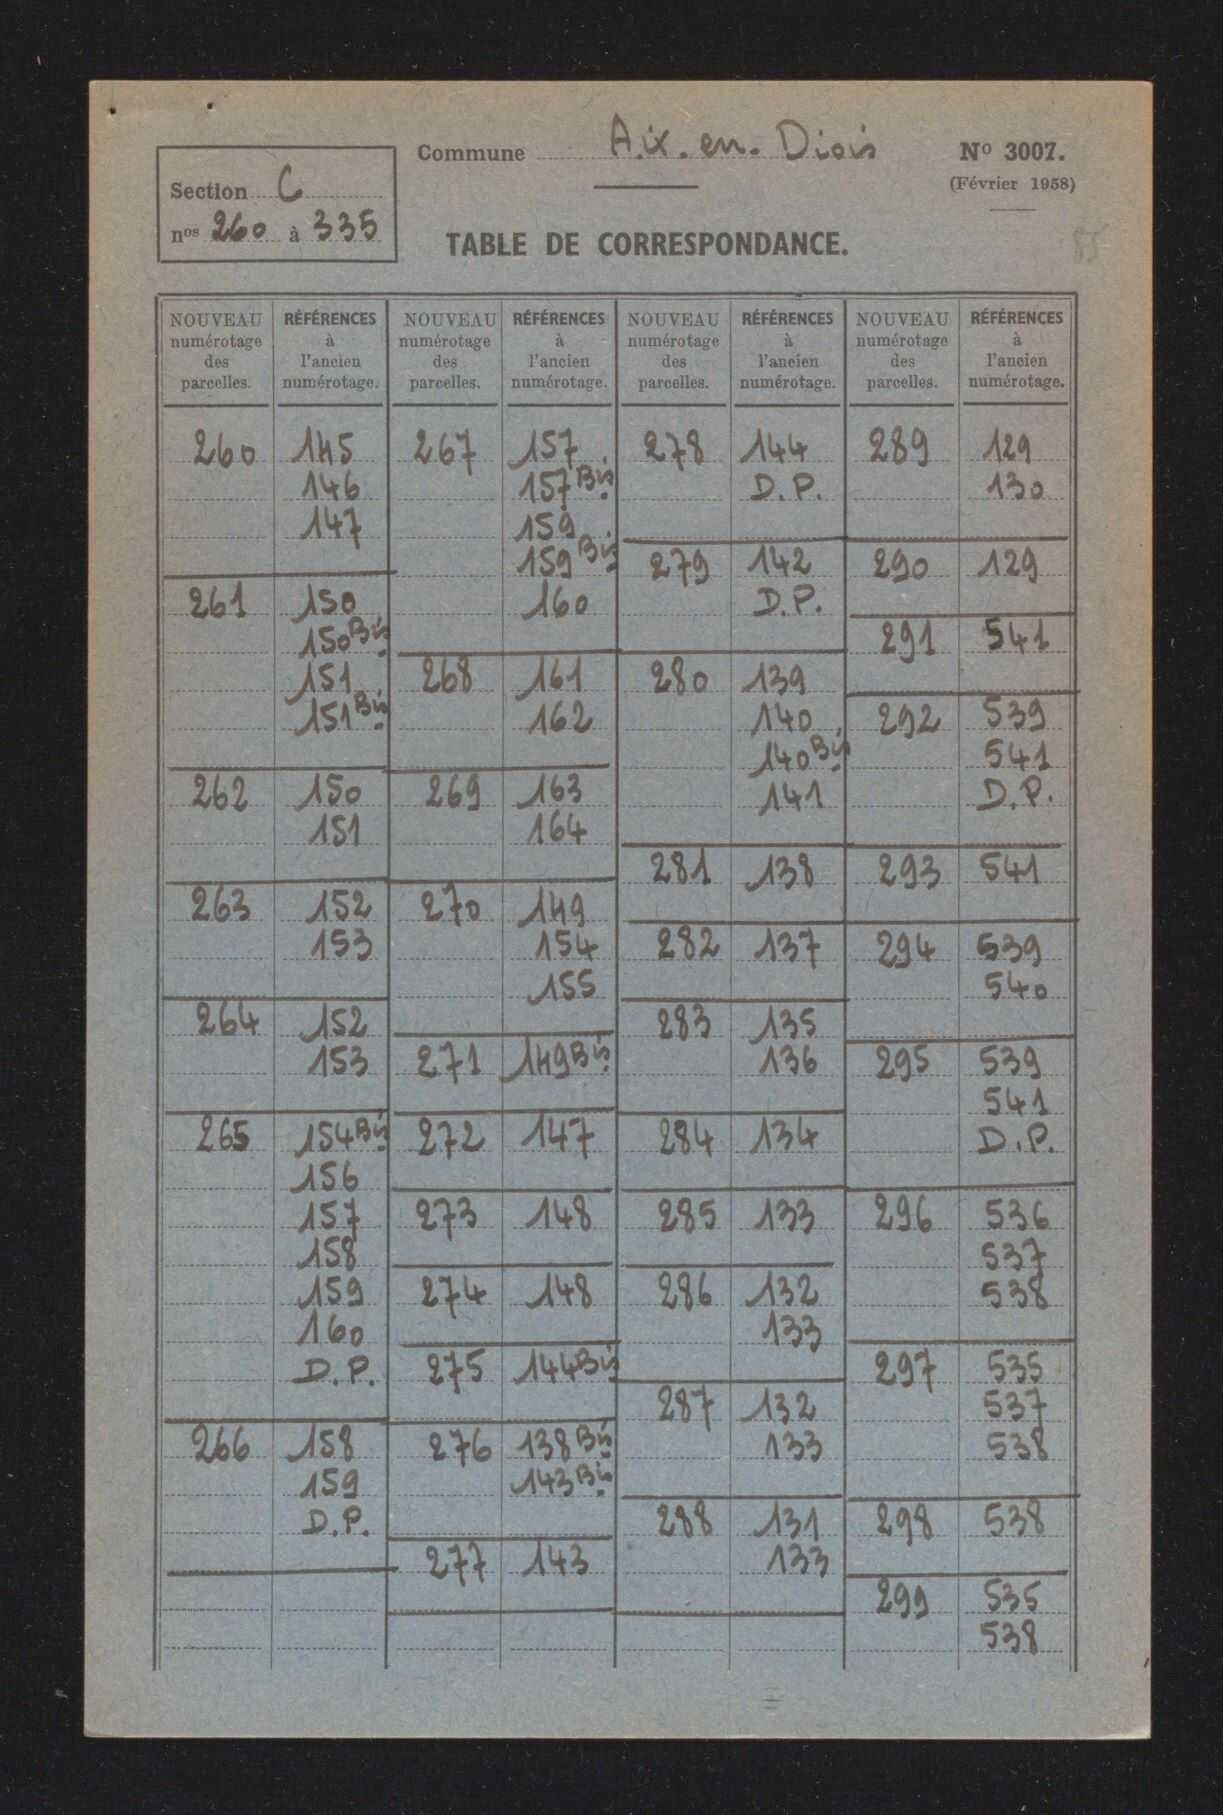 Commune Aix-en-Diois
Nº 3007.
(Février 1958)
Section C
nos 260 à 335
TABLE DE CORRESPONDANCE.
55
NOUVEAU numérotage des parcelles.
RÉFÉRENCES à l'ancien numérotage.
260 145
146
147
261 150
150 Bis
151
151 Bis
262 150
151
263 152
153
264 152
153
265 154 Bis
156
157
158
159
160
D.P.
266 158
159
D.P.
NOUVEAU numérotage des parcelles.
RÉFÉRENCES à l'ancien numérotage.
267 157
157 Bis
159
159 Bis
160
268 161
162
269 163
164
270 149
154
155
271 149 Bis
272 147
273 148
274 148
275 144 Bis
276 138 Bis
143 Bis
277 143
NOUVEAU numérotage des parcelles.
RÉFÉRENCES à l'ancien numérotage.
278 144
D.P.
279 142
D.P.
280 139
140
140 Bis
141
281 138
282 137
283 135
136
284 134
285 133
286 132
133
287 132
133
288 131
133
NOUVEAU numérotage des parcelles.
RÉFÉRENCES à l'ancien numérotage.
289 129
130
290 129
291 541
292 539
541
D.P.
293 541
294 539
540
295 539
541
D.P.
296 536
537
538
297 535
537
538
298 538
299 535
538